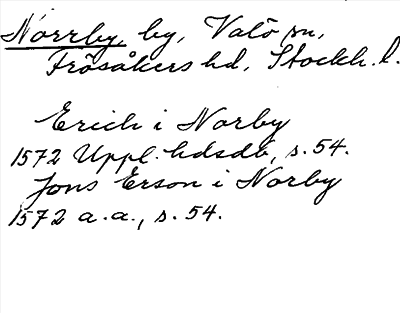 Norrby, by, Valö sn,
Frösåkers hd, Stockh. l.
Erich i Norby
1572 Uppl. hdsdb, s. 54.
Jons Erson i Norby
1572 a. a., s. 54.